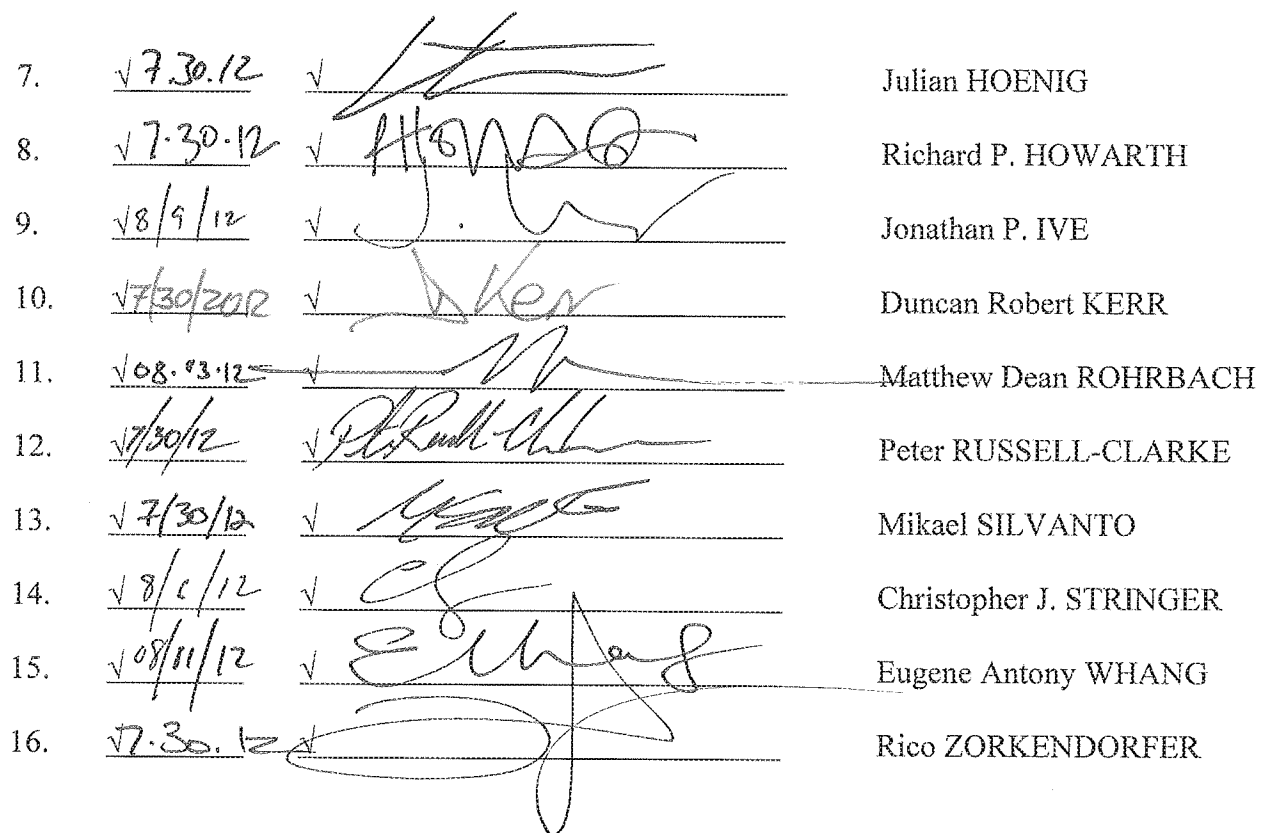 7. √7.30.12 √ Julian HOENIG
8. √7.30.12 √ Richard P. HOWARTH
9. √8/9/12 √ J. Jonathan P. IVE
10. √7/30/2012 √ DKerr Duncan Robert KERR
11. √08.03.12 √ Matthew Dean ROHRBACH
12. √7/30/12 √ Peter RUSSELL-CLARKE
13. √7/30/12 √ Mikael SILVANTO
14. √ √ Christopher J. STRINGER
15. √08/11/12 √ EWhang Eugene Antony WHANG
16. √7.30.12 √ Rico ZORKENDORFER